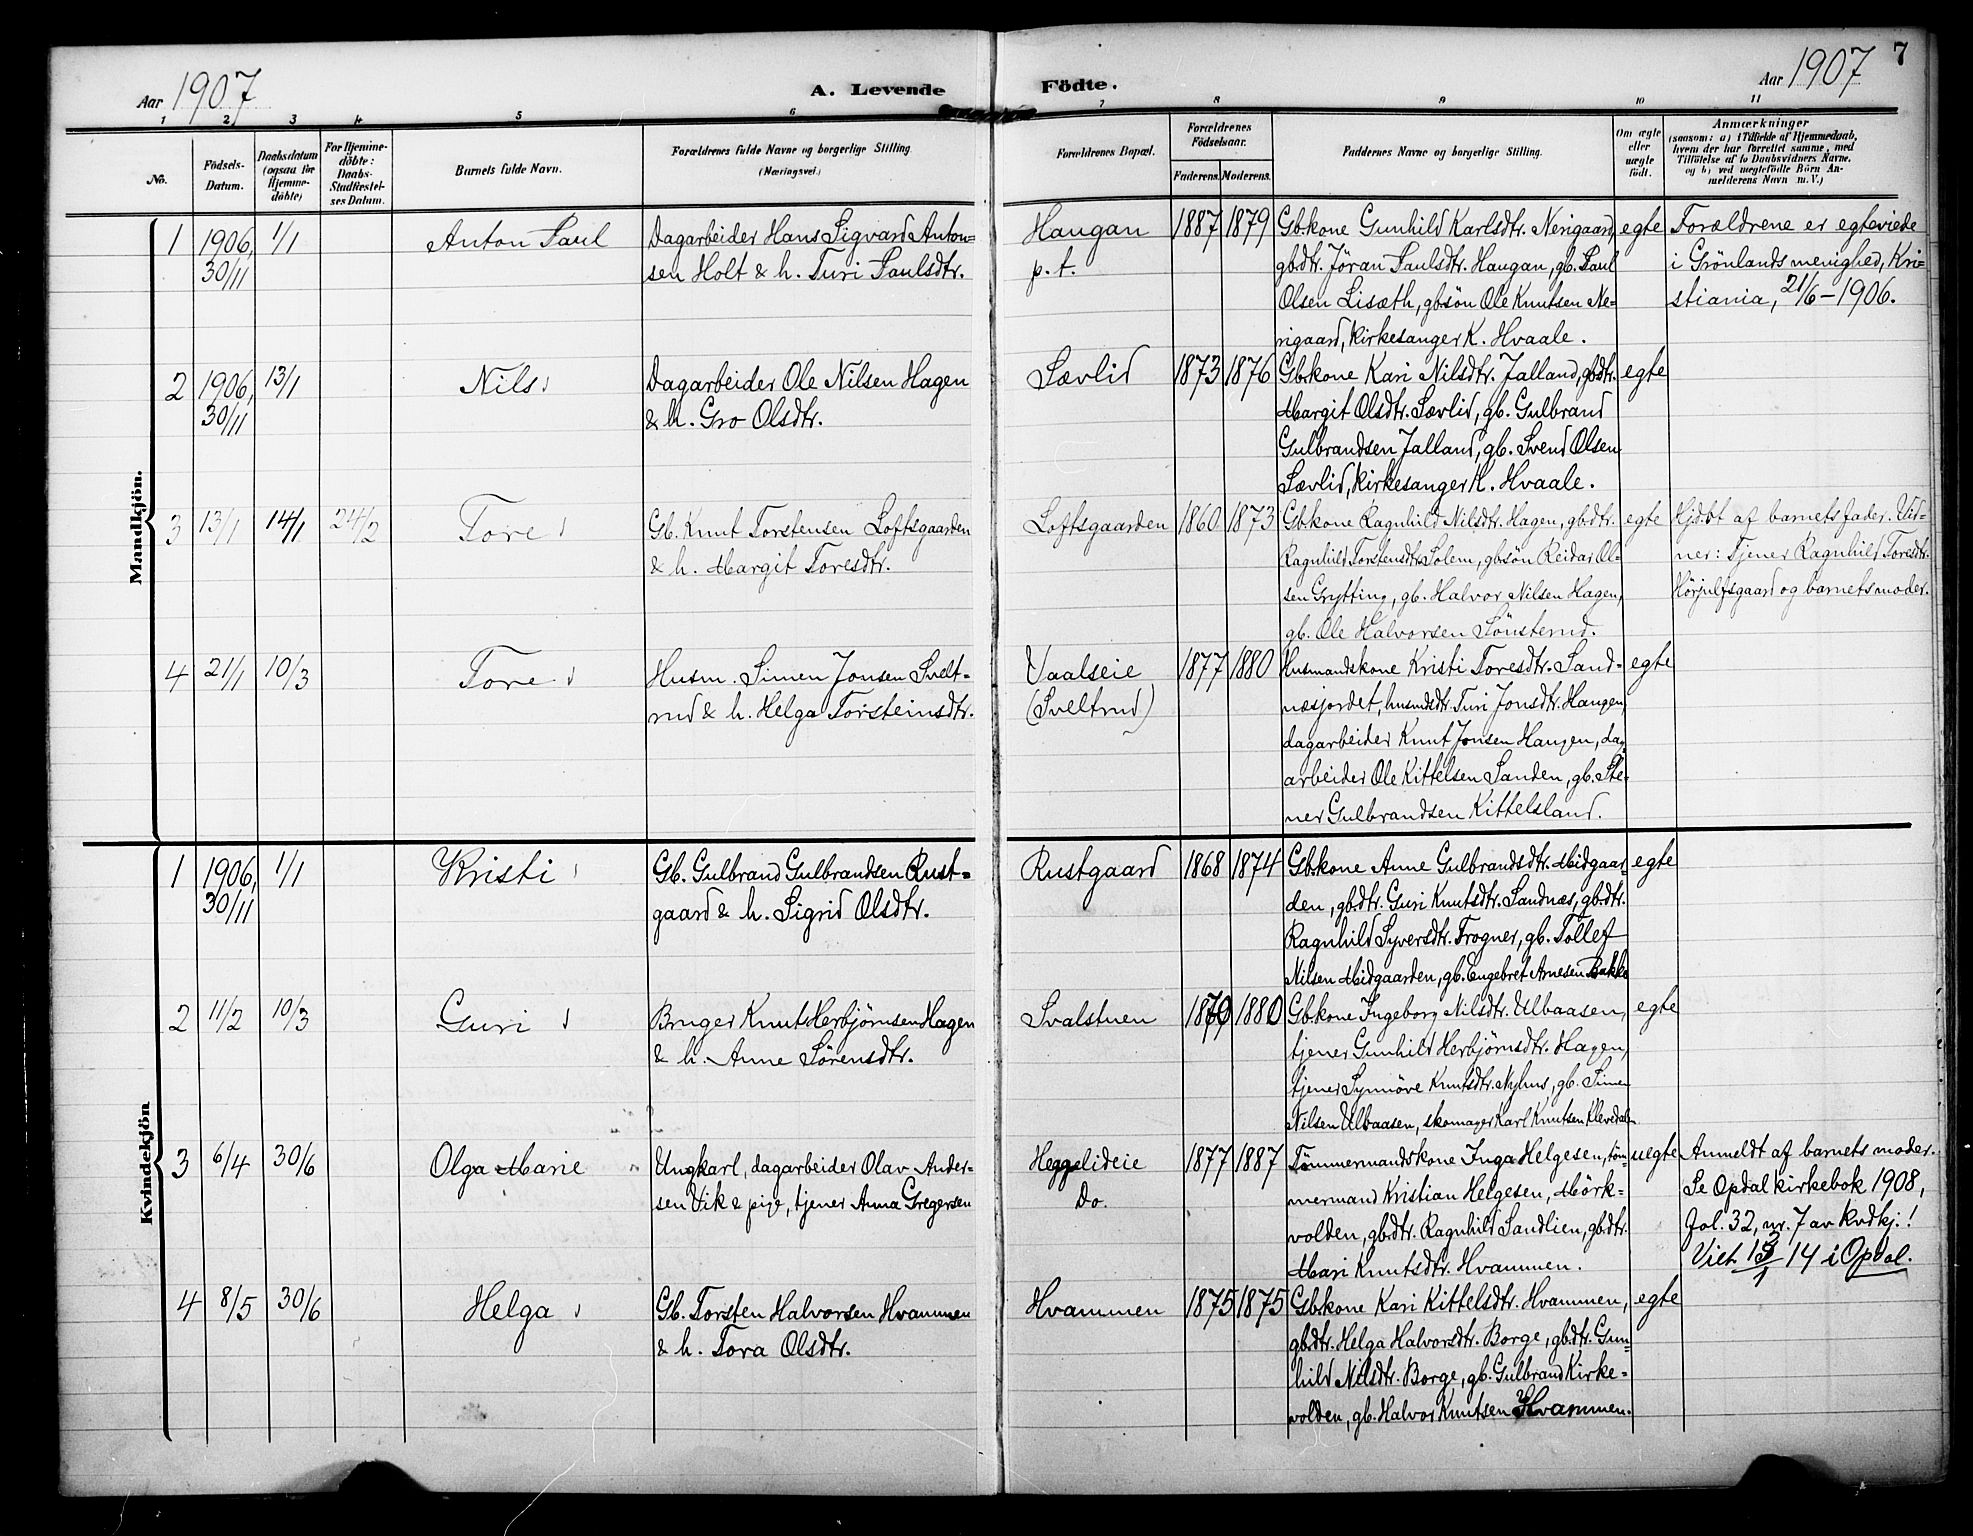 Aar 1907
A. Levende Födte.
Aar 1907
7
1 2 3 4 5 6 7 8 9 10 11
No.
Födsels-
Datum.
Daabsdatum
(ogsaa for
Hjemme-
döbte)
For Hjemme-
döbte:
Daabs-
Stadfæstel-
ses Datum.
Barnets fulde Navn.
Forældrenes fulde Navne og borgerlige Stilling
(Næringsvei.)
Forældrenes Bopæl.
Forældrenes
Födselsaar.
Faderens. Moderens.
Faddernes Navne og borgerlige Stilling.
Om ægte
eller
uægte
födt.
Anmærkninger
(saasom: a) i Tilfælde af Hjemmedaab,
hvem der har forrettet samme, med
Tilföielse af to Daabsvidners Navne.
og b) ved uægtefödte Börn An-
melderens Navn m. V.)
Mandkjön.
1
1906,
30/11
1/1
Anton Paul
Dagarbeider Hans Sigvard Anton=
sen Holt & h. Turi Paulsdtr.
Haugan
p. t.
1887 1879
Gbkone Gunhild Karlsdtr. Nerigaard,
gbdtr. Jöran Paulsdtr. Haugan, gb. Paul
Olsen Lisæth, gbsön Ole Knutsen Ne-
rigaard, kirkesanger K. Hvaale.
egte
Forældrene er egteviede
i Grönlands menighed, Kri-
stiania, 21/6 - 1906.
2
1906,
30/11
13/1
Nils
Dagarbeider Ole Nilsen Hagen
& h. Gro Olsdtr.
Sævlid
1873 1876
Gbkone Kari Nilsdtr. Jalland, gbdtr.
Margit Olsdtr. Sævlid, gb. Gulbrand
Gulbrandsen Jalland, gb. Svend Olsen
Sævlid, kirkesanger K. Hvaale.
egte
3
13/1
14/1
24/2
Tore
Gb. Knut Torstensen Loftsgaarden
& h. Margit Toresdtr.
Loftsgaarden
1860 1873
Gbkone Ragnhild Nilsdtr. Hagen, gbdtr.
Ragnhild Torstensdtr. Solem, gbsön Reidar Ol-
sen Grytting, gb. Halvor Nilsen Hagen,
gb. Ole Halvorsen Sönsterud.
egte
Hjdöbt af barnets fader. Vid-
ner: Tjener Ragnhild Toresdtr.
Hörjulfsgaard og barnets moder.
4
21/1
10/3
Tore
Husm. Simen Jonsen Svelt-
rud & h. Helga Torsteinsdtr.
Vaalseie
(Sveltrud)
1877 1880
Husmandskone Kristi Toresdtr. Sand-
næsjordet, husmdtr. Turi Jonsdtr. Haugen,
dagarbeider Knut Jonsen Haugen, dag
arbeider Ole Kittelsen Sanden, gb. Ste-
ner Gulbrandsen Kittelsland.
egte
Kvindekjön
1
1906,
30/11
1/1
Kristi
Gb. Gulbrand Gulbrandsen Rust=
gaard & h. Sigrid Olsdtr.
Rustgaard
1868 1874
Gbkone Anne Gulbrandsdtr. Midgaar-
den, gbdtr. Guri Knutsdtr. Sandnæs, gbdtr.
Ragnhild Syversdtr. Frogner, gb. Tollef
Nilsen Midgaarden, gb. Engebret Arnesen Bakke
egte
2
11/2
10/3
Guri
Bruger Knut Herbjörnsen Hagen
& h. Anne Sörensdtr.
Svalstuen
1879 1880
Gbkone Ingeborg Nilsdtr. Ulbaasen,
tjener Gunhild Herbjörnsdtr. Hagen,
tjener Synnöve Knutsdtr. Nyhus, gb. Simen
Nilsen Ulbaasen, skomager Karl Knutsen Klevedalen
egte
3
6/4
30/6
Olga Marie
Ungkarl, dagarbeider Olav Ander-
sen Vik & pige, tjener Anna Gregersen
Heggelideie
Do.
1877 1887
Tömmermandskone Inga Helgesen, töm-
mermand Kristian Helgesen, Mörk-
volden, gbdtr. Ragnhild Sandlien, gbdtr.
Mari Knutsdtr. Hvammen.
uegte
Anmeldt af barnets moder.
Se Opdal kirkebok 1908,
Fol. 32, nr. 7 av kvdkj.!
Viet 14 i Opdal.
4
8/5
30/6
Helga
Gb. Torsten Halvorsen Hvammen
& h. Tora Olsdtr.
Hvammen
1875 1875
Gbkone Kari Kittelsdtr. Hvammen,
gbdtr. Helga Halvorsdtr. Borge, gbdtr. Gun-
hild Nilsdtr. Borge, gb. Gulbrand Kirke-
volden, gb. Halvor Knutsen Hvammen.
egte